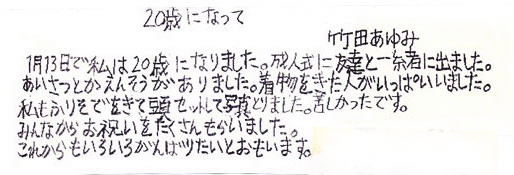 20歳になって
竹田あゆみ
1月13日で私は20歳になりました。成人式に友達と一緒に出ました。
あいさつとかえんそうがありました。着物をきた人がいっぱいいました。
私もふりそでをきて頭セットして写真とりました。苦しかったです。
みんなからお祝いをたくさんもらいました。
これからもいろいろがんばりたいとおもいます。